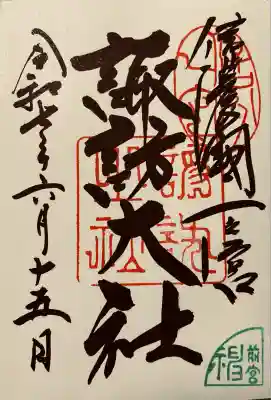 信濃國一之宮
諏訪大社
令和七年六月十五日
前宮